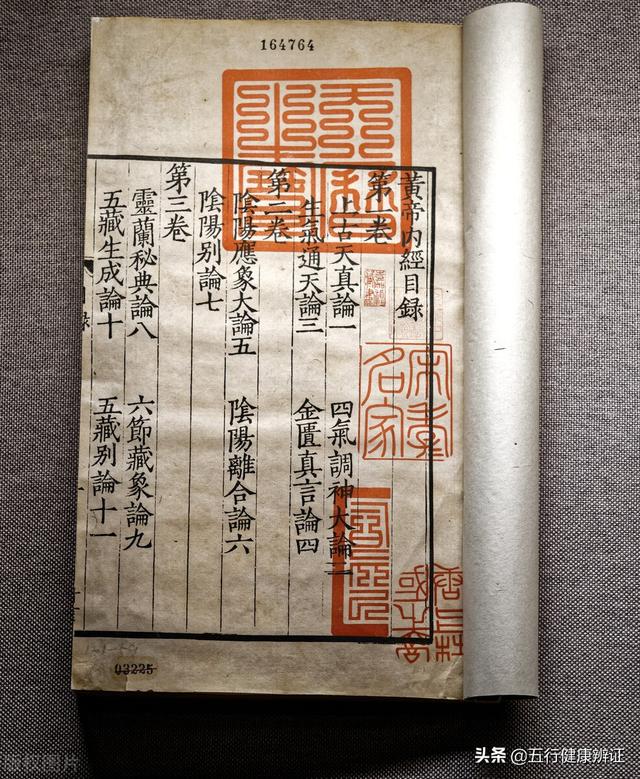 164764
黃帝內經目錄
第一卷
上古天真論一 四氣調神大論二
生氣通天論三 金匱真言論四
第二卷
陰陽應象大論五 陰陽離合論六
陰陽别論七
第三卷
靈蘭秘典論八 六節藏象論九
五藏生成論十 五藏别論十一
03225
头条 @五行健康辨证